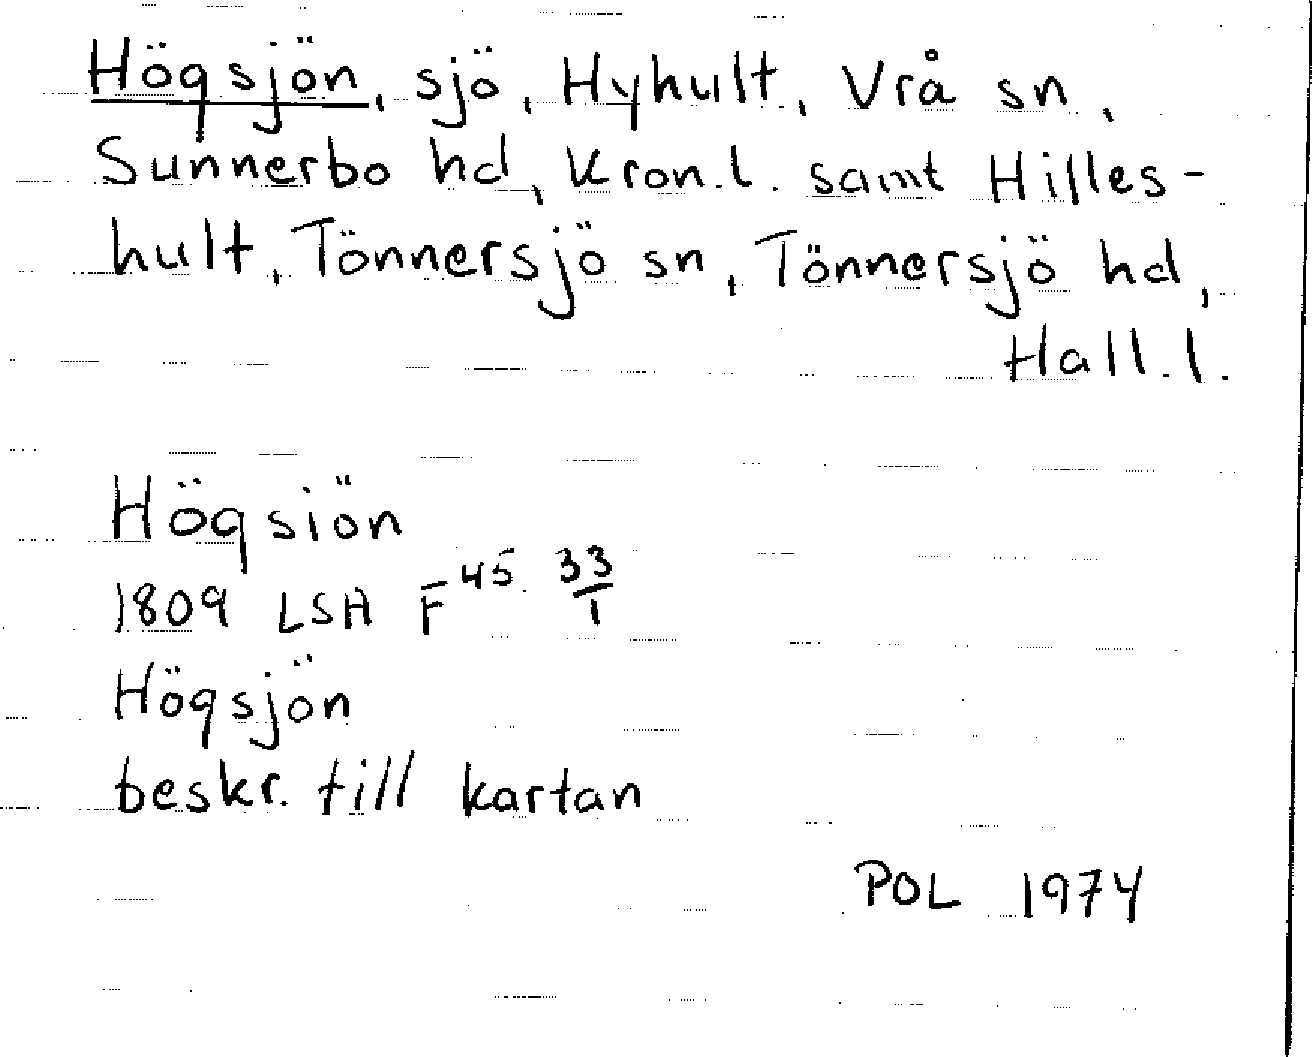 Högsjön, sjö, Hyhult, Vrå sn,
Sunnerbo hd, Kron.l. samt Hilles-
hult, Tönnersjö sn, Tönnersjö hd,
Hall.l.
Högsiön
1809 LSA F 45 33/1
Högsjön
beskr. till kartan
POL 1974